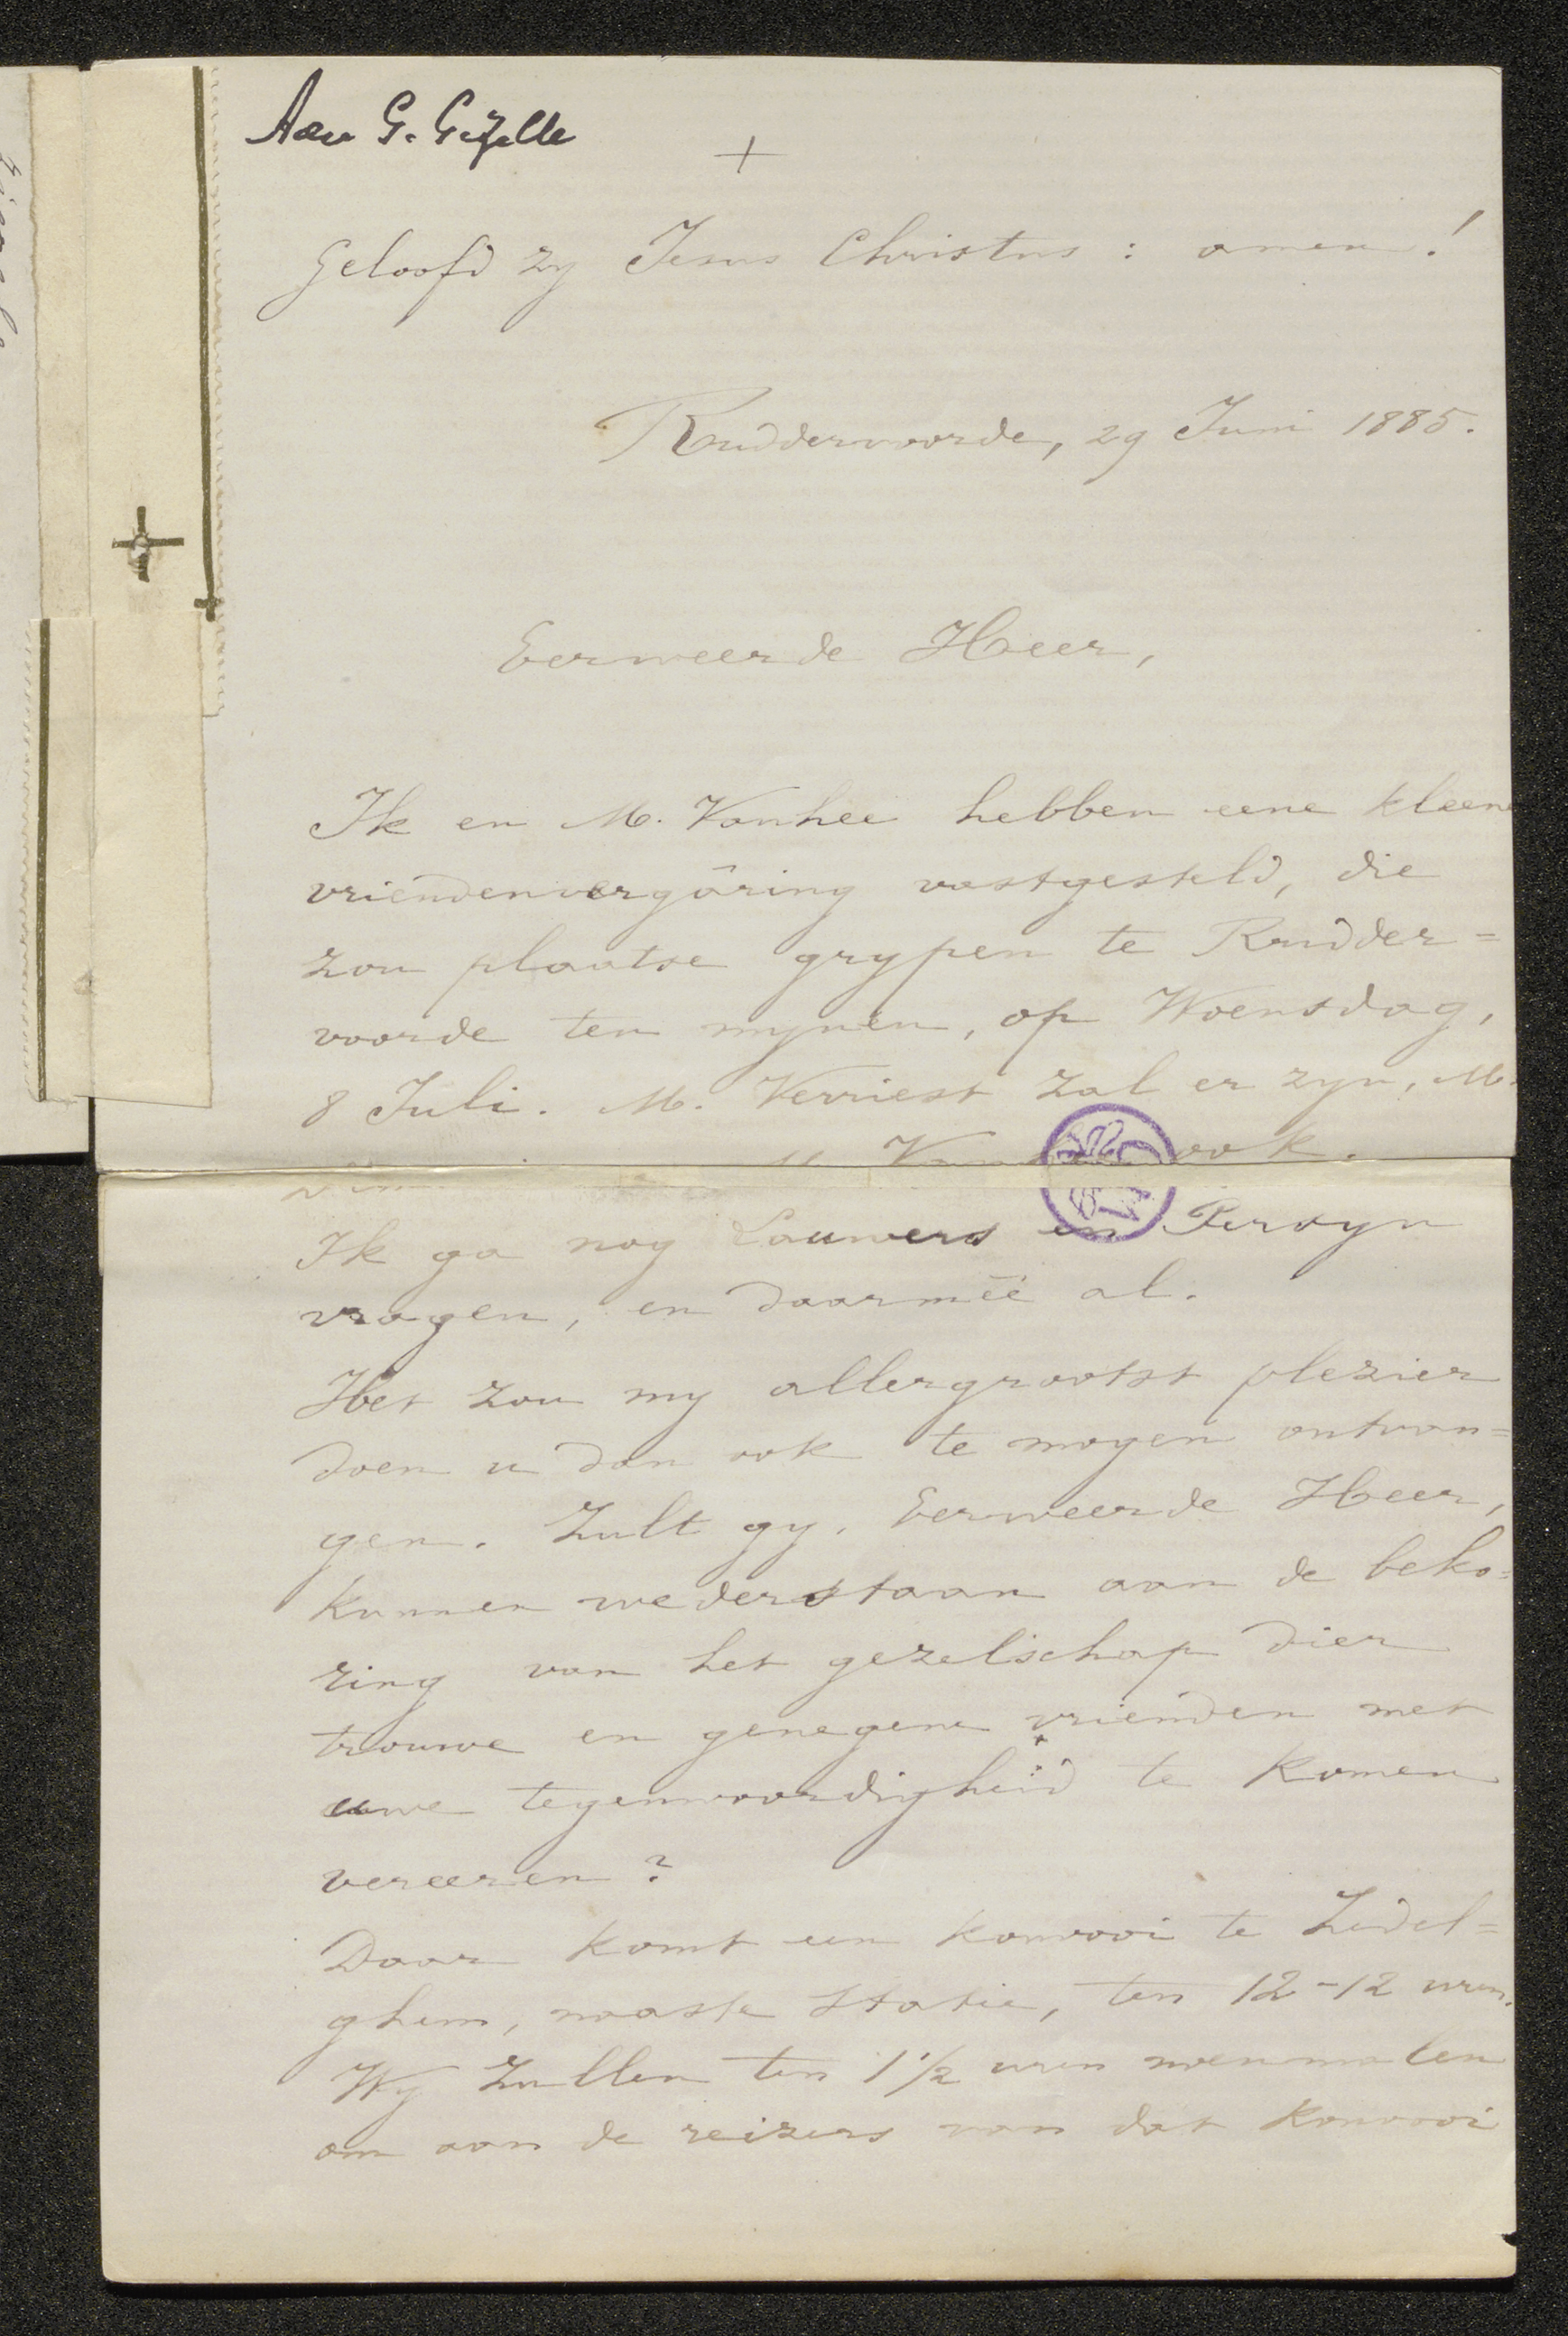 Aan G. Gezelle
+
Geloofd zy Jesus Christus : amen !
Ruddervoorde, 29 Juni 1885.
Eerweerde Heer,
Ik en M. Vanhee hebben eene kleene
vriendenvergâring vastgesteld, die
zou plaatse grypen te Rudder=
voorde ten mynen, op Woensdag,
8 Juli. M. Verriest zal er zyn, M.
ook.
Ik ga nog Lauwers en Persyn
vragen, en daarmeê al.
Het zou my allergrootst plezier
doen u dan ook te mogen ontvan=
gen. Zult gy, Eerweerde Heer,
kunnen wederstaan aan de beko=
ring van het gezelschap dier
trouwe en genegene vrienden met
uwe tegenwoordigheid te komen
vereeren ?
Daar komt een konvooi te Zedel=
ghem, naaste statie, ten 12-12 uren.
Wy zullen ten 1 1/2 uren noenmalen
om aan de reizers van dat konvooi